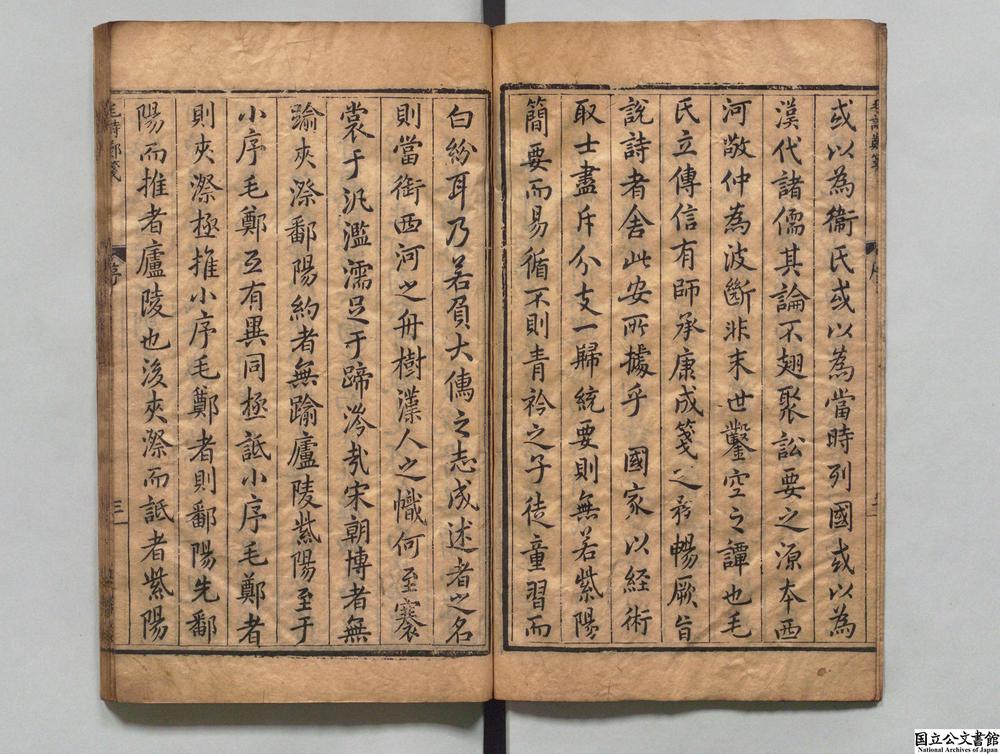 或以為衞氏或以為當時列國或以為
漢代諸儒其論不翅聚訟要之源本西
河敬仲為波斷非末世鑿空之譚也毛
氏立傳信有師承康成箋之彩暢厥旨
說詩者舍此安所據乎　國家以経術
取士盡斥分支一歸統要則無若紫陽
簡要而易循不則青衿之子徒童習而
白紛耳乃若負大傳之志成述者之名
則當銜西河之冊樹漢人之幟何至褰
裳于汎濫濡足于蹄涔㢤宋朝博者無
踰夾漈鄱陽約者無踰廬陵紫陽至于
小序毛鄭互有異同極詆小序毛鄭者
則夾漈極推小序毛鄭者則鄱陽先鄱
陽而推者廬陵也後夾漈而詆者紫陽
毛詩鄭箋
序
三
国立公文書館
National Archives of Japan